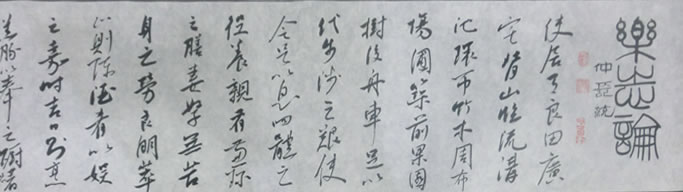 樂志論
仲長統
使居有良田廣
宅背山臨流溝
池環帀竹木周布
場圃築前果園
樹後舟車足以
代步涉之艱使
令足以息四體之
役養親有兼珍
之膳妻孥無苦
身之勞良朋萃
止則陳酒肴以娛
之嘉時吉日則烹
羔豚以奉之